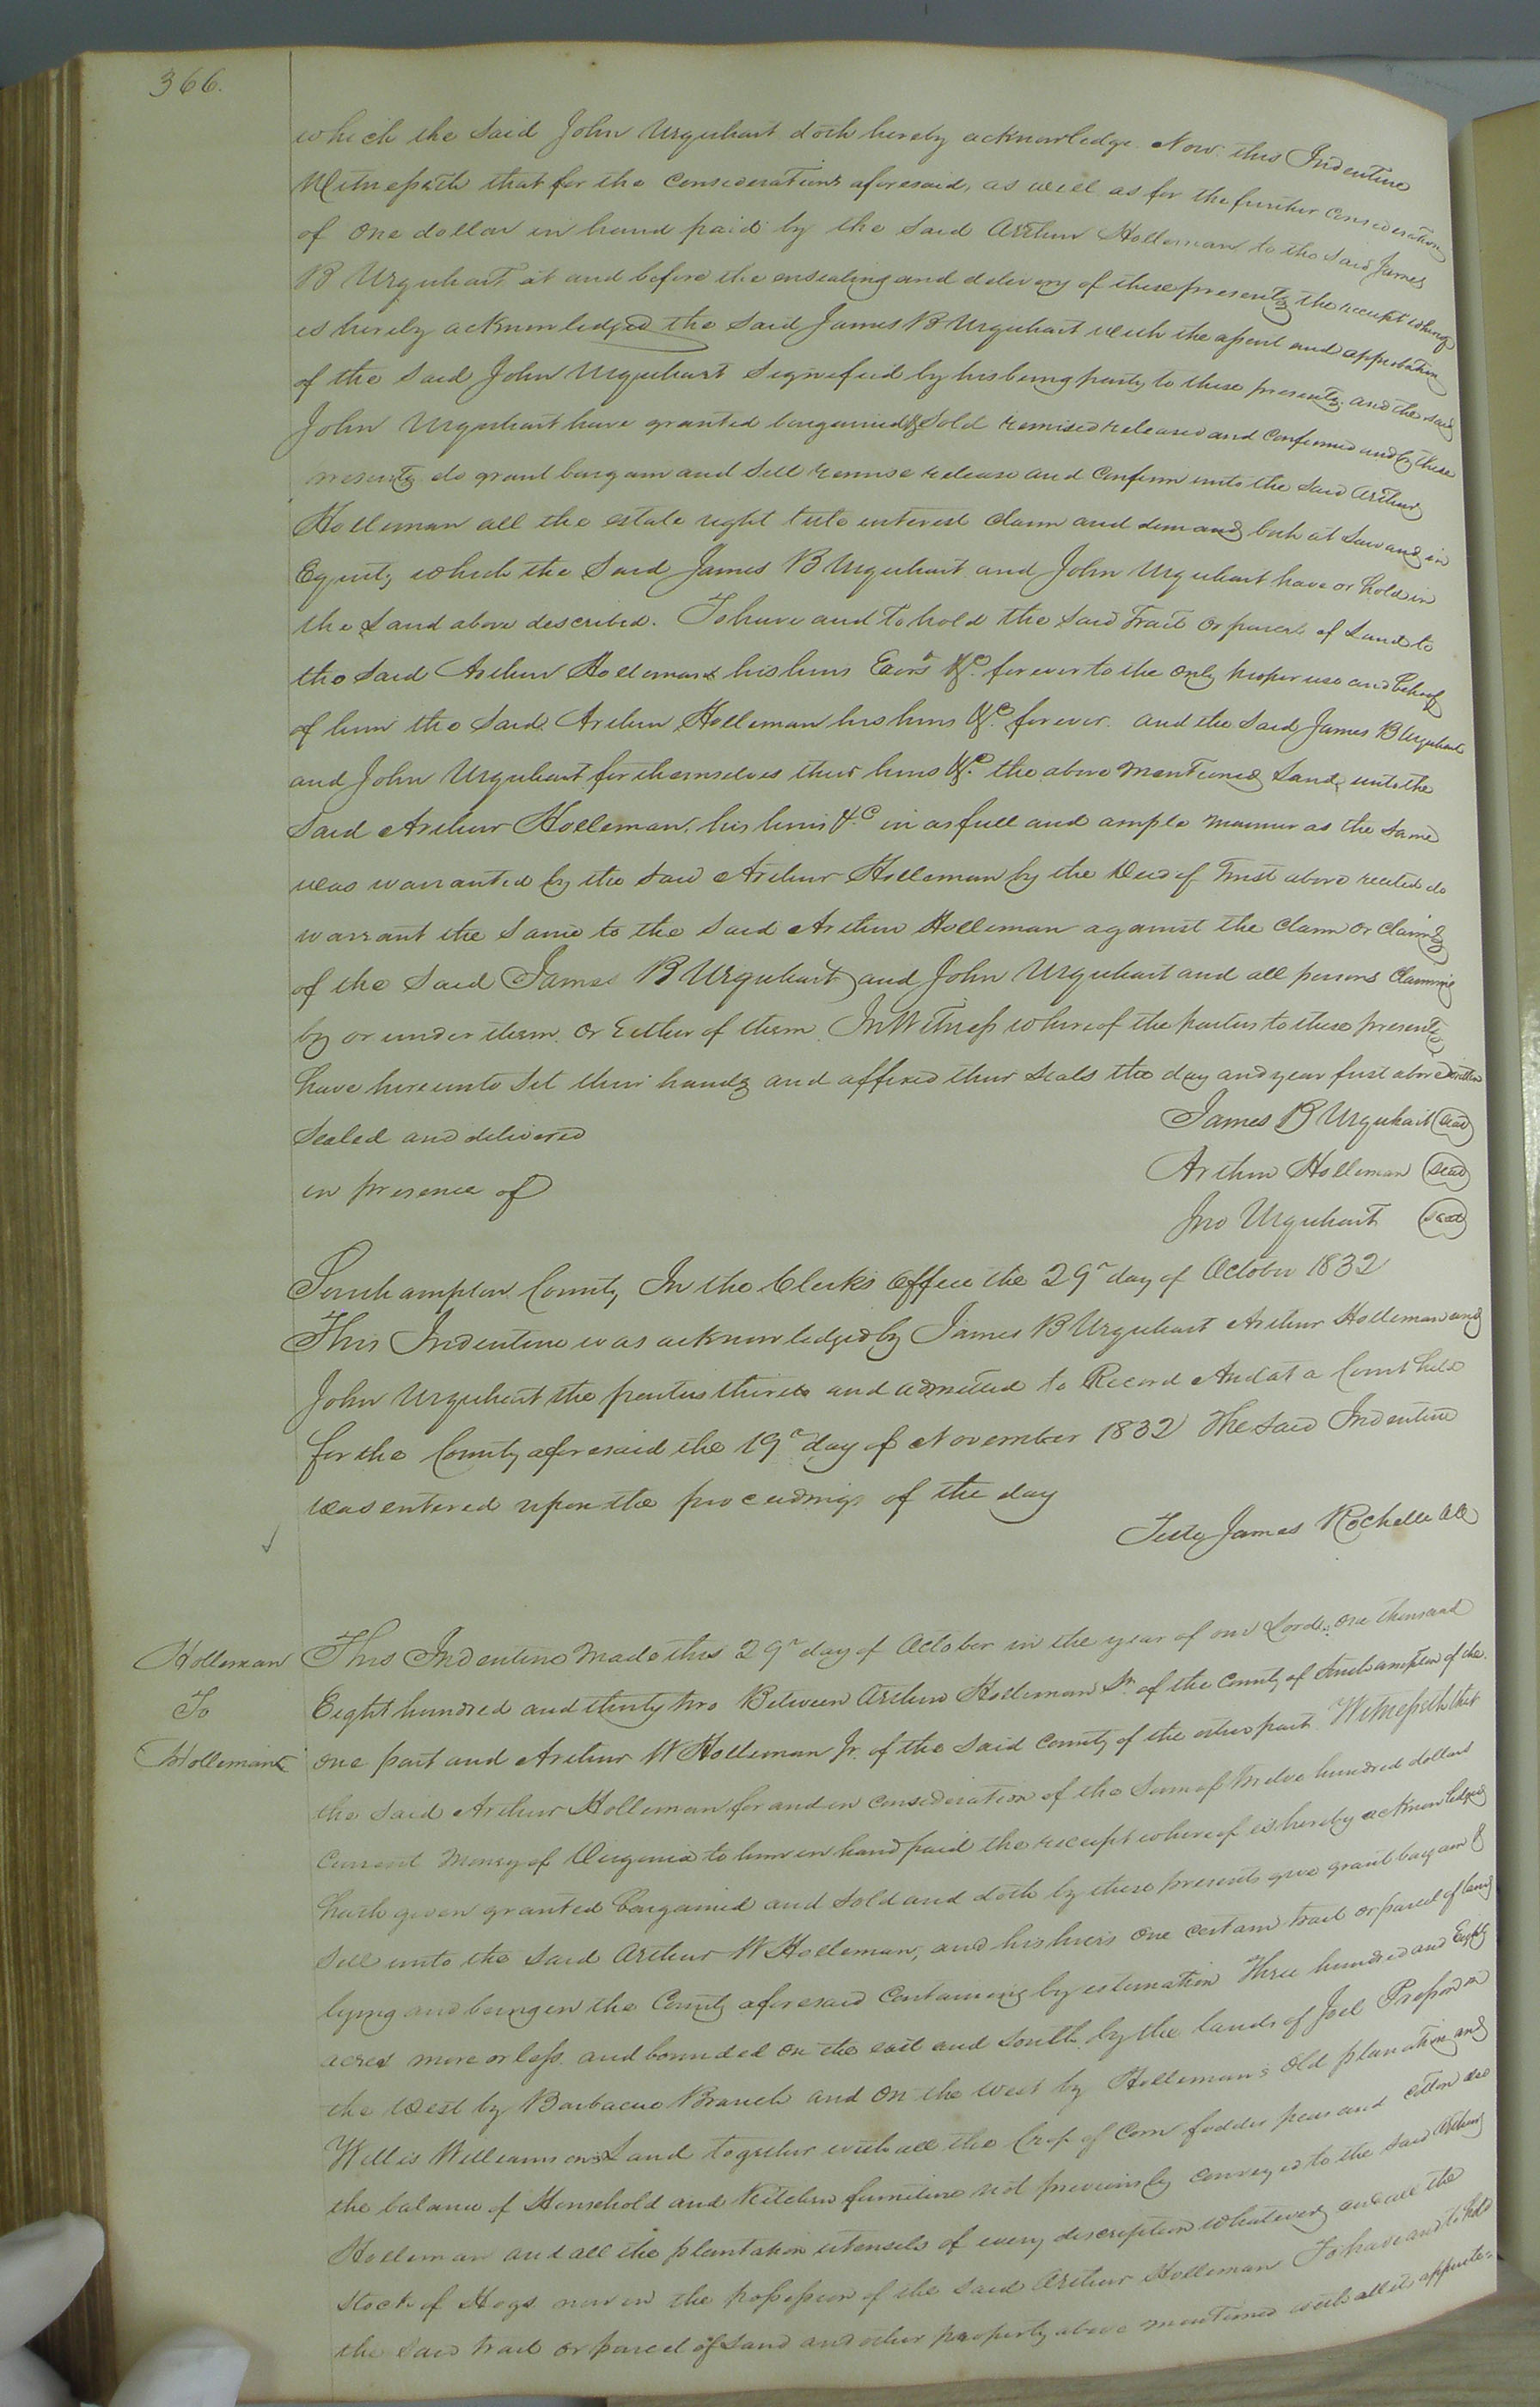 366.
which the said John Urquhart doth hereby acknowledge. Now this Indenture
Witnesseth that for the considerations aforesaid, as well as for the further consideration
of one dollar in hand paid by the said Arthur Holleman to the said James
B Urquhart at and before the ensealing and delivery of these presents the receipt whereof
is hereby acknowledged the said James B Urquhart with the assent and approbation
of the said John Urquhart signified by his being party to these presents and the said
John Urquhart have granted bargained & sold remised released and confirmed and by these
presents do grant bargain and sell remise release and confirm unto the said Arthur
Holleman all the estate right title interest claim and demand both at Law and in
Equity which the said James B Urquhart and John Urquhart have or hold in
the Land above described. To have and to hold the said Tract or parcel of Land to
the said Arthur Holleman his heirs Exors &c. forever to the only proper use and behoof
of him the said Arthur Holleman his heirs &c. forever. and the said James B Urquhart
and John Urquhart for themselves their heirs &c. the above mentioned Land, unto the
said Arthur Holleman, his heirs &c in as full and ample manner as the same
was warranted by the said Arthur Holleman by the Deed of Trust above recited do
warrant the same to the said Arthur Holleman against the claim or claims
of the said James B Urquhart and John Urquhart and all persons claiming
by or under them or Either of them. In Witness whereof the parties to these presents
have hereunto set their hands and affixed their seals the day and year first above written
James B Urquhart seal
Sealed and delivered
Arthur Holleman seal
in presence of
Jno Urquhart seal
Southampton County In the Clerks office the 29th day of October 1832
This Indenture was acknowledged by James B Urquhart Arthur Holleman and
John Urquhart the parties thereto and admitted to Record And at a Court held
for the County aforesaid the 19th day of November 1832 The said Indenture
was entered upon the proceedings of the day
Teste James Rochelle CC
Holleman
To
Holleman
This Indenture made this 29th day of October in the year of our Lord, one thousand
Eight hundred and thirty two Between Arthur Holleman Sr. of the County of Southampton of the
one part and Arthur W Holleman Jr. of the said County of the other part. Witnesseth that
the said Arthur Holleman for and in consideration of the Sum of Twelve hundred dollars
Current Money of Virginia to him in hand paid the receipt whereof is hereby acknowledged
hath given granted bargained and sold and doth by these presents give grant bargain &
sell unto the said Arthur W Holleman, and his heirs one certain tract or parcel of land
lying and being in the County aforesaid containing by estimation Three hundred and Eighty
acres more or less and bounded on the east and south by the lands of Joel Presson on
the West by Barbacue Branch and on the west by Holleman's old planation and
Willis Williamsons Land together with all the Crop of Corn fodder peas and cotton all
the balance of Household and Kitchen furniture not previously conveyed to the said Arthur
Holleman and all the plantation utensels of every discription whatever and all the
stock of Hogs now in the possession of the said Arthur Holleman To have and to hold
the said tract or parcel of Land and other property above mentioned with all it appurte=